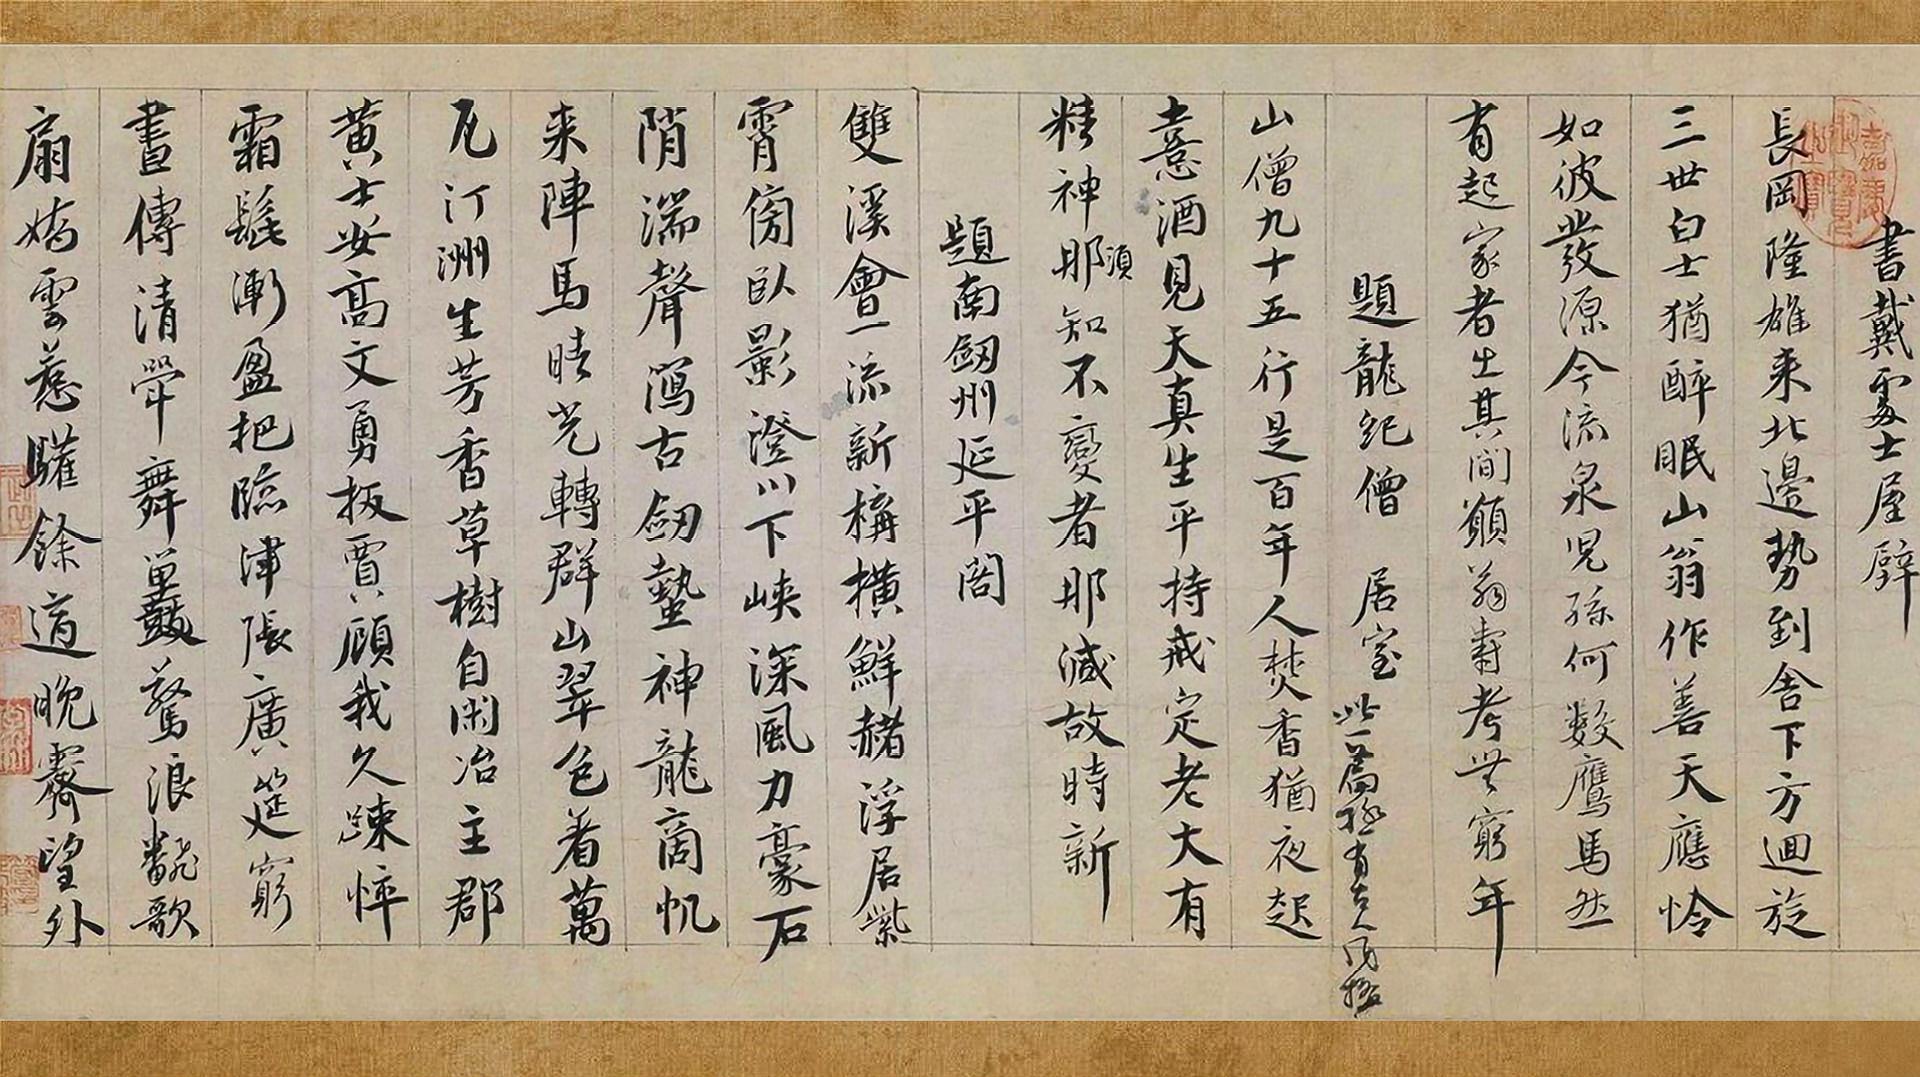 書戴處士屋壁
長岡隆雄来北邊勢到舍下方迴旋
三世白士猶醉眠山翁作善天應怜
如彼發源今流泉兒孫何數鷹馬然
有起家者生其間願翁壽考無窮年
題龍紀僧居室 此一篇極有古人風格
山僧九十五行是百年人焚香猶夜起
憙酒見天真生平持戒定老大有
精神那須知不變者那減故時新
題南劒州延平閣
雙溪會一流新構橫鮮赭浮居紫
霄傍臥影澄川下峽深風力豪石
陗湍聲瀉古劒蟄神龍商帆
来陣馬晴光轉群山翠色著萬
瓦汀洲生芳香草樹自閑冶主郡
黃士安高文勇扳賈顧我久疎悴
霜髭漸盈把臨津張廣筵窮
晝傳清斝舞鼉驚浪翻歌
扇嬌雲惹驩餘適晚霽望外